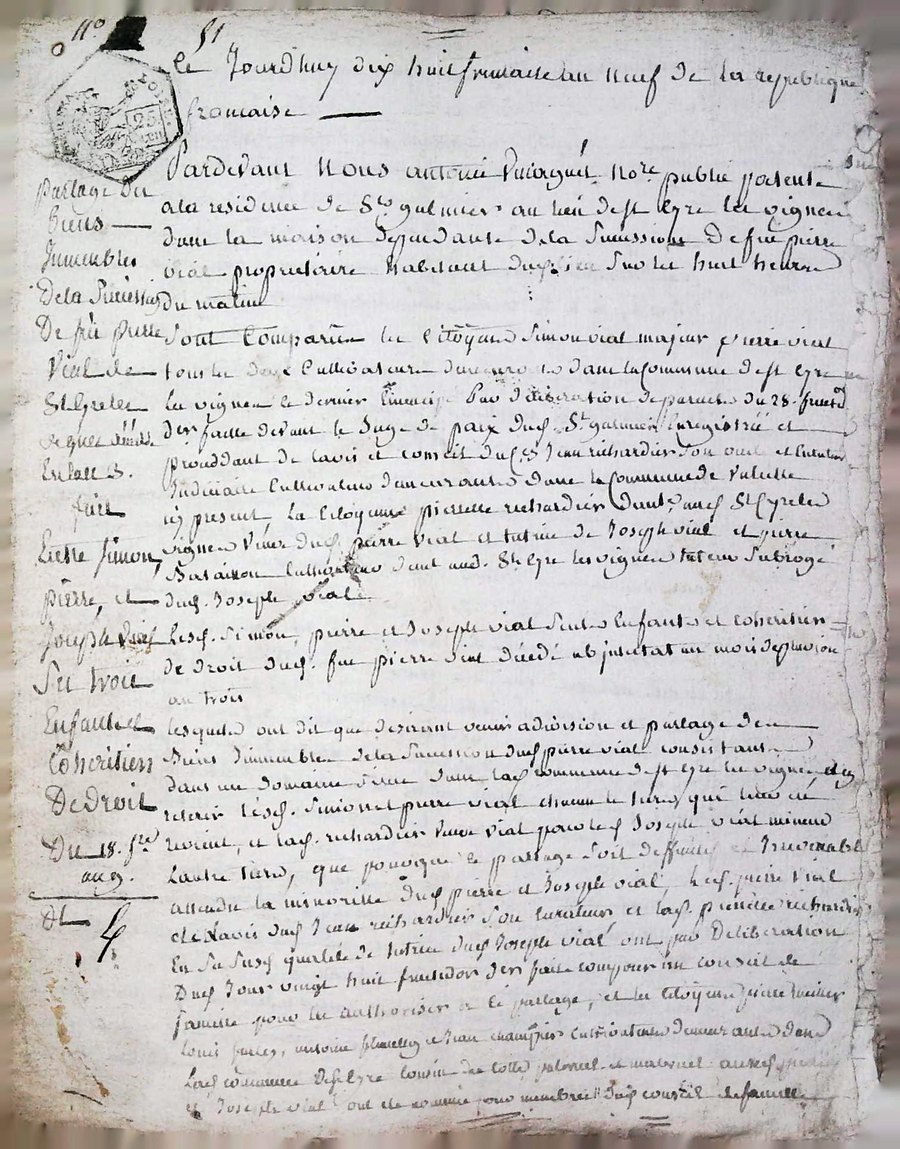 No 51
Ce Jourdhuy dix huit frimaire an neuf de la republique
francaise
Pardevant Nous antoine Nore public patente
a la residence de St galmier au lieu de st Cyre les vignes
dans la maison dependante de la Succession de feu pierre
vial proprietaire habitant dud. lieu Sur les huit heures
du matin
Sont Comparus les Citoyens Simon vial majeur pierre vial
tous les deux Cultivateurs demeurants dans la Commune de st Cyre
les vignes le dernier Emancipé Par déliberation du 28. fructid
der faitte devant le Juge de paix dud. St galmier Enregistrée et
procédant de lavis et conseil dud. Jean richardier Son et Curateur
Judiciaire Cultivateur demeurant dans la Commune de valeille
icy present La Citoyenne pierrette richardier demt. aud. St Cyre les
vignes veuve dud. pierre vial et tutrice de Joseph vial et pierre
Cultivateur demt aud. St Cyre les vignes tuteur Subrogé
dud. Joseph vial
Lesd. Simon, pierre et Joseph vial Seuls Enfants et Coheritiers
de droit dud. feu pierre vial décédé ab intestat au mois de
an trois
lesquels ont dit que desirant venir a division et partage des
Biens Immeubles de la Succession dud. pierre vial consistants
dans un domaine Situé dans lad. commune de st Cyre les vignes
lesd. Simon et pierre vial chacun le tiers qui leur
revient, et lad. richardier veuve vial pour led. Joseph vial mineur
Lautre tiers, que pour que le partage Soit deffinitif et Irrévocable
attendu la minorité dud. pierre et Joseph vial, led. pierre vial
et de Lavis dud. Jean richardier Son Curateur et lad. pierrette richardier
En Sa Susd. qualité de tutrice dud. Joseph vial ont par Déliberation
Dud. Jour vingt huit fructidor der fait composer un conseil de
famille pour les authoriser a ce partage, et les Citoyens pierre
Louis antoine et Jean Cultivateurs demeurants dans
lad. commune de st Cyre Cousins des cotés paternel et maternel auxd. pierre
et Joseph vial ont été nommés pour membres dud. conseil de famille
Partage des
Biens
Immeubles
De la Succession
De feu pierre
Vial de
St Cyre les
vignes décédé
En lan 3.
fait
Entre Simon,
pierre, et
Joseph vial
Ses trois
Enfants et
Coheritiers
De Droit
Du 18. fre
an 9.